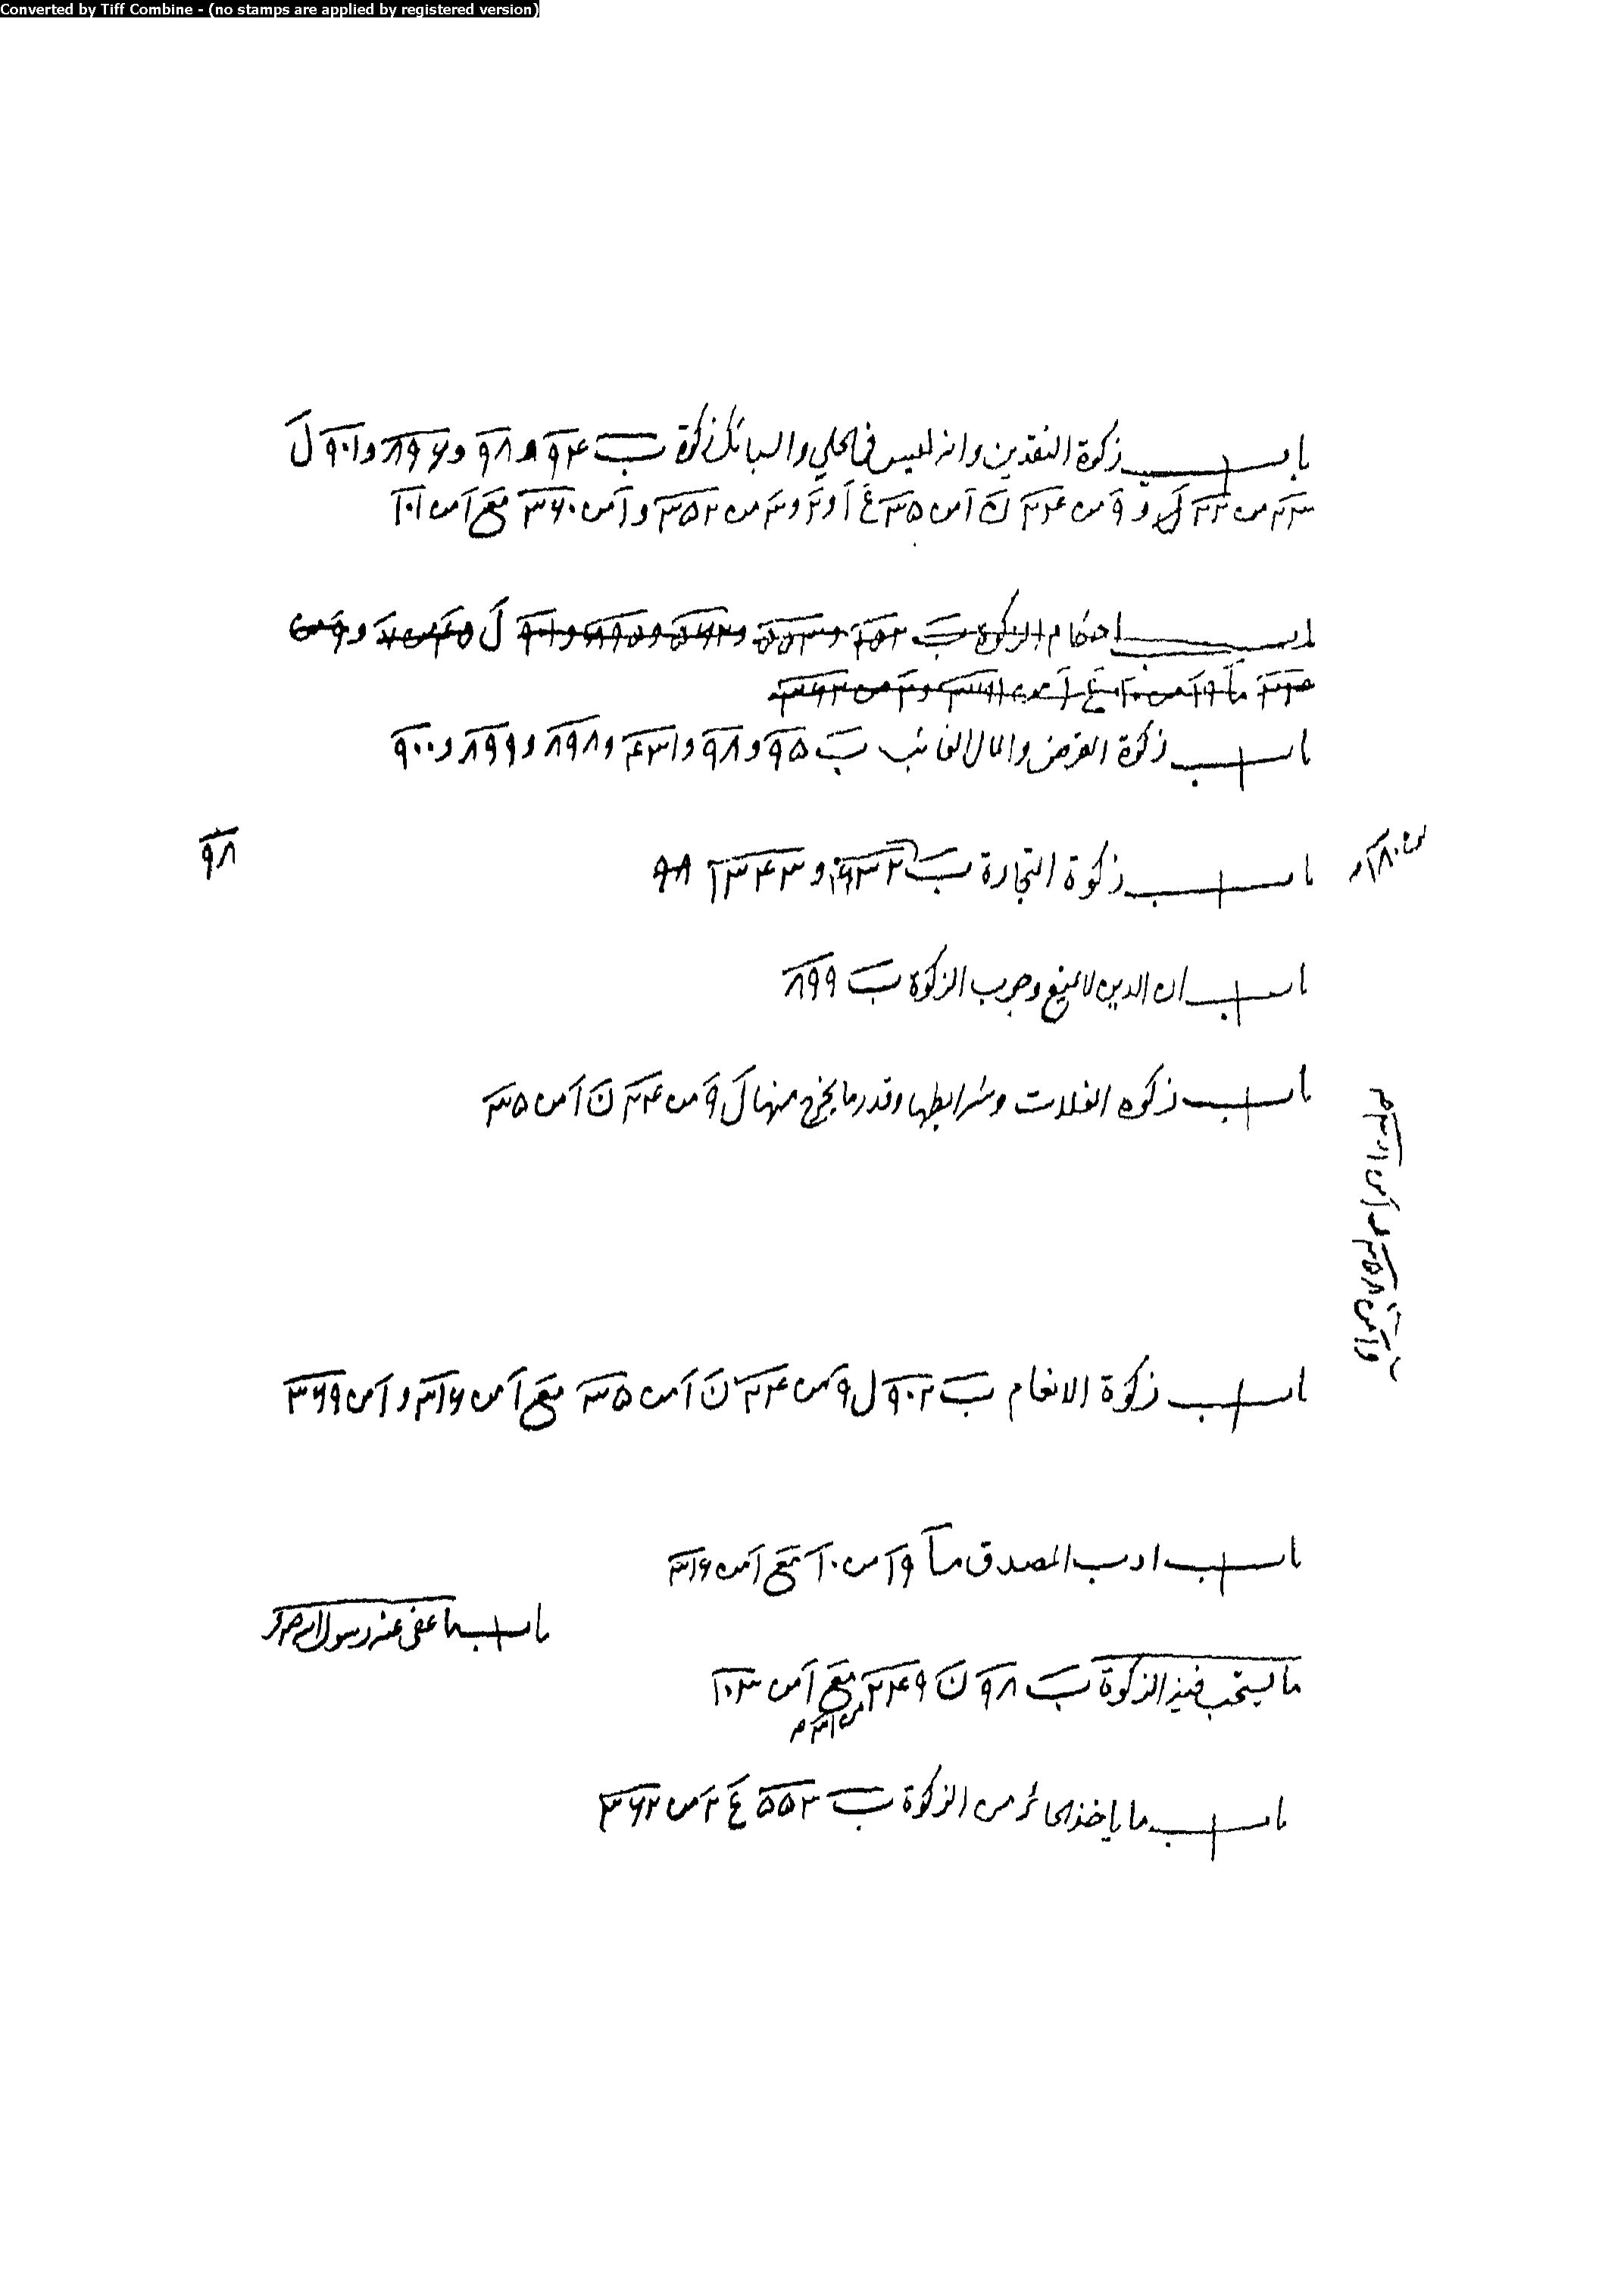 Converted by Tiff Combine - (no stamps are applied by registered version)
باب زكوة النقدين وانه ليس فى الحلي والسبائك زكوة ب ٩٤ و ٩٨ و ٨٩٦ و ٩٠١ ل
٢٣ س ٢٢ و ٩ س ٢٢٤ ن ١ س ٣٥ غ ١ و ٢ و ٣ س ٣٥٢ و ١ س ٣٦٠ مع ١ س ١٠١
باب احكام الزكوة ب
باب زكوة القرض والمال الغائب ب ٩٥ و ٩٨ و ٤٣١ و ٨٩٨ و ٨٩٩ و ٩٠٠
باب زكوة التجارة ب ٦٣٢ و ١٣٤٣ ٩٨
٩٨
باب ان الدين لا يمنع وجوب الزكوة ب ٨٩٩
باب زكوه الغلات وشرايطها وقدر ما يخرج منها ل ٩ س ٢٢٤ ن ١ س ٣٥
باب زكوة الانعام ب ٩٠٢ ل ٩ س ٢٢٤ ن ١ س ٣٥ مع ١ س ٣١٦ و ١ س ٣٦٩
باب ادب المصدق ما و ١ س ١٠ مع ١ س ٣١٦
باب ما عفى عنه رسول الله
ما يستحب فيه الزكوة ب ٩٨ ن ٢٤٩ مع ١ س ١٠٣
باب ما ياخذ الجائر من الزكوة ب ٥٥٢ غ ٢ س ٣٦٢